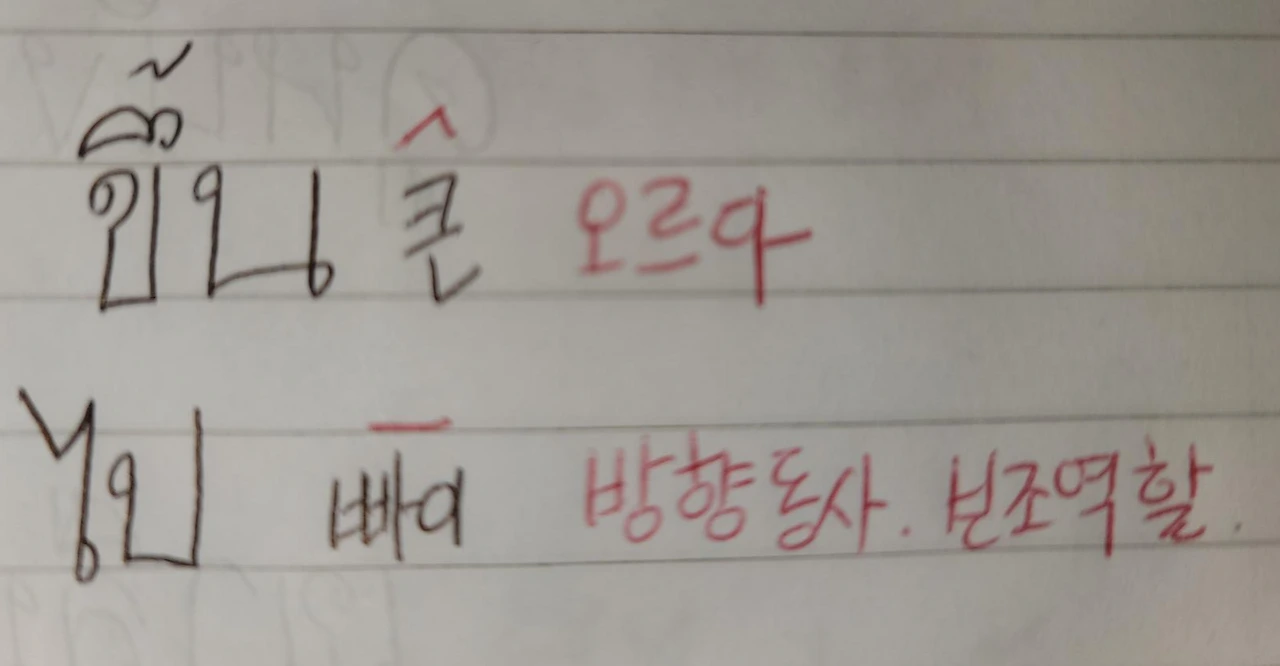 ขึ้น 큰 오르다
ไป 빠이 방향동사. 보조역할.